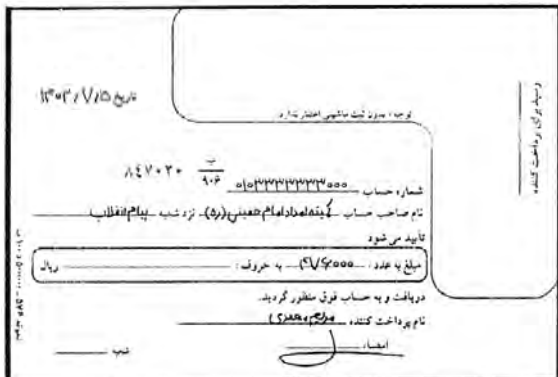 رسید برای پرداخت کننده
تاریخ ۱۴۰۳/۷/۱۵
توجه: بدون ثبت ماشینی اعتبار ندارد.
۸۴۷۰۳۰ ب/۹۰۶
شماره حساب ۰۱۰۳۳۳۳۳۳۳۰۰۰
نام صاحب حساب کمیته امداد امام خمینی (ره) نزد شعبه پیام انقلاب
تأیید می شود
مبلغ به عدد: به حروف: ریال
دریافت و به حساب فوق منظور گردید.
نام پرداخت کننده
امضاء
شعب